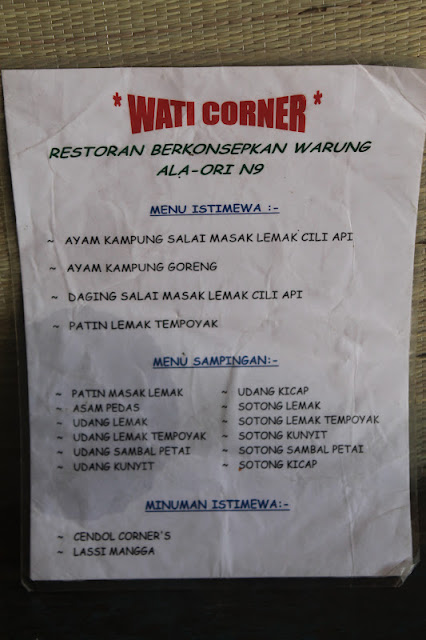 *WATI CORNER*
RESTORAN BERKONSEPKAN WARUNG
ALA-ORI N9
MENU ISTIMEWA :-
~ AYAM KAMPUNG SALAI MASAK LEMAK CILI API
~ AYAM KAMPUNG GORENG
~ DAGING SALAI MASAK LEMAK CILI API
~ PATIN LEMAK TEMPOYAK
MENU SAMPINGAN:-
~ PATIN MASAK LEMAK
~ ASAM PEDAS
~ UDANG LEMAK
~ UDANG LEMAK TEMPOYAK
~ UDANG SAMBAL PETAI
~ UDANG KUNYIT
~ UDANG KICAP
~ SOTONG LEMAK
~ SOTONG LEMAK TEMPOYAK
~ SOTONG KUNYIT
~ SOTONG SAMBAL PETAI
~ SOTONG KICAP
MINUMAN ISTIMEWA:-
~ CENDOL CORNER'S
~ LASSI MANGGA